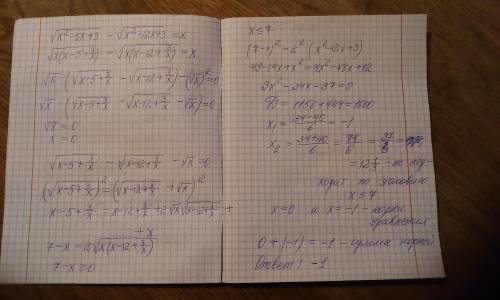 √(x²-5x+3) - √(x²-12x+3) = x
√(x(x-5+3/x)) - √(x(x-12+3/x)) = x
√x · (√(x-5+3/x) - √(x-12+3/x)) - (√x)² = 0
√x · (√(x-5+3/x) - √(x-12+3/x) - √x) = 0
√x = 0
x = 0
√(x-5+3/x) - √(x-12+3/x) - √x = 0
(√(x-5+3/x))² = (√(x-12+3/x) + √x)²
x-5+3/x = x-12+3/x + 2√x√(x-12+3/x) +
+x
7-x = 2√(x(x-12+3/x))
7-x ≥ 0
x ≤ 7
(7-x)² = 2² (x²-12x+3)
49-14x+x² = 4x²-48x+12
3x²-34x-37=0
D = 1156+444=1600
x₁ = (34-40)/6 = -1
x₂ = (34+40)/6 = 74/6 = 37/3 =
= 12 1/3 - не под-
ходит по условию
x ≤ 7
x=0 и x=-1 - корни
уравнения
0+(-1) = -1 - сумма корней
Ответ: -1